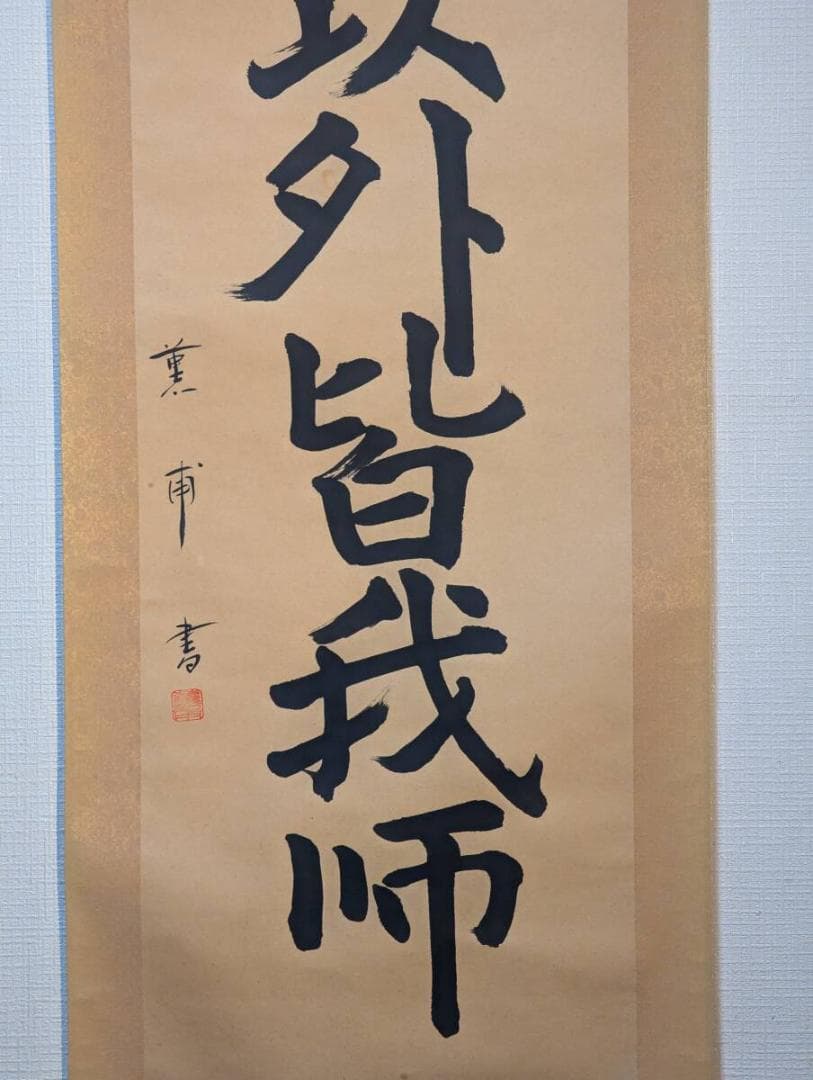 以外皆我师
薫甫書